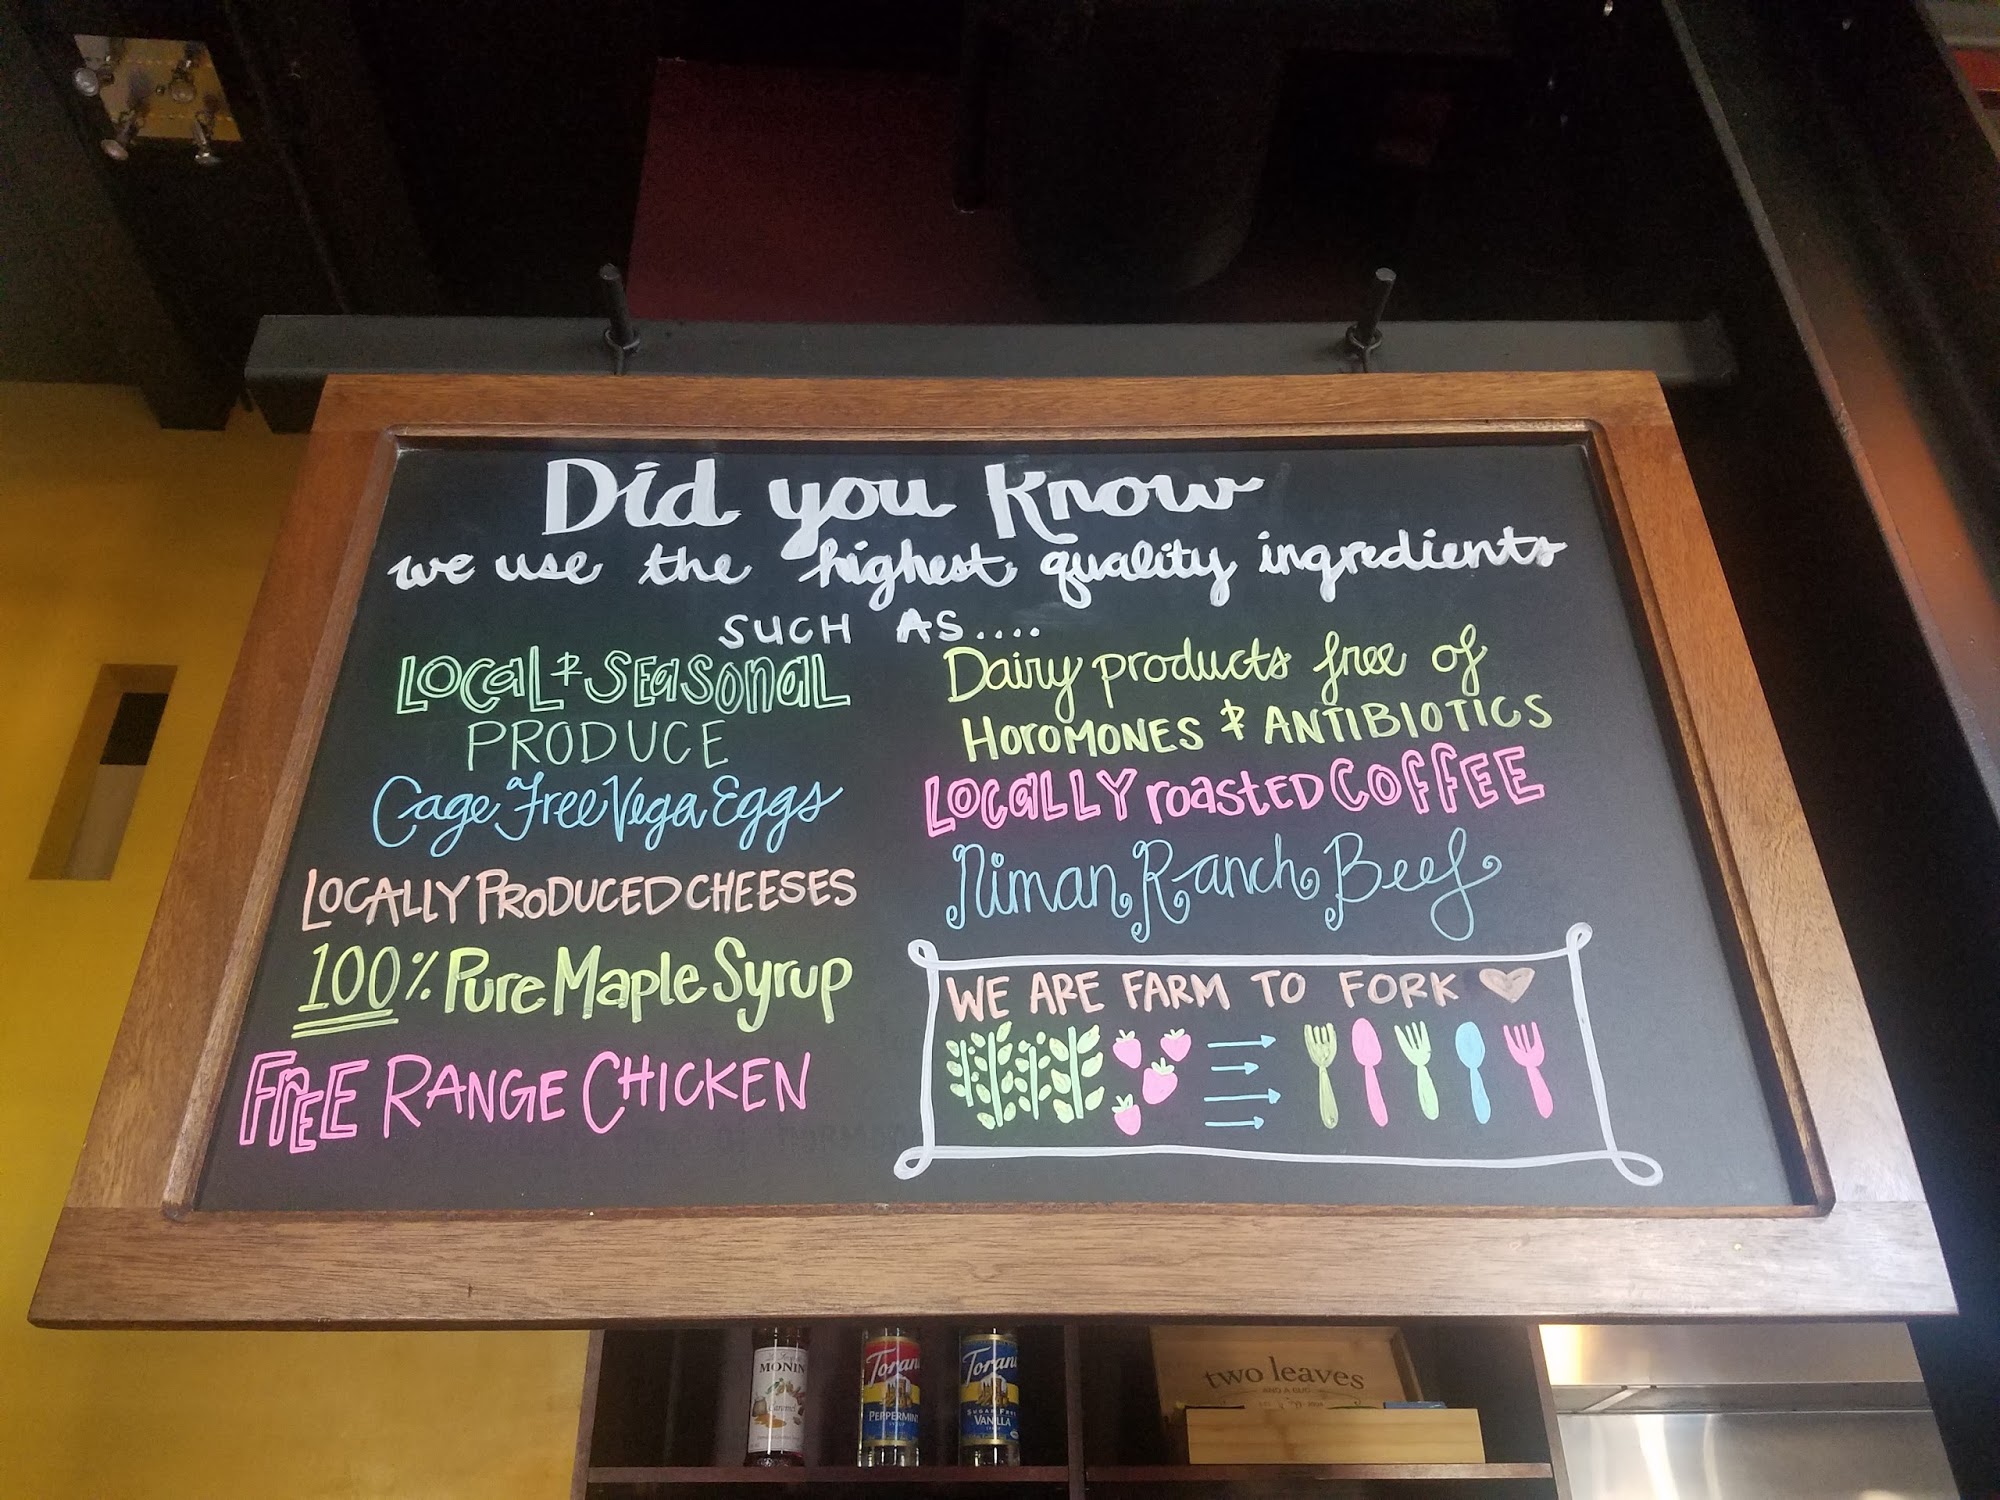 Did you know
we use the highest quality ingredients
SUCH AS....
LOCAL & SEASONAL
PRODUCE
Cage Free Vega Eggs
LOCALLY PRODUCED CHEESES
100% Pure Maple Syrup
FREE RANGE CHICKEN
Dairy products free of
HOROMONES & ANTIBIOTICS
LOCALLY roasted COFFEE
Niman Ranch Beef
WE ARE FARM TO FORK
MONIN
Caramel
Torani
PEPPERMINT
Torani
SUGAR FREE
VANILLA
two leaves
AND A BUD